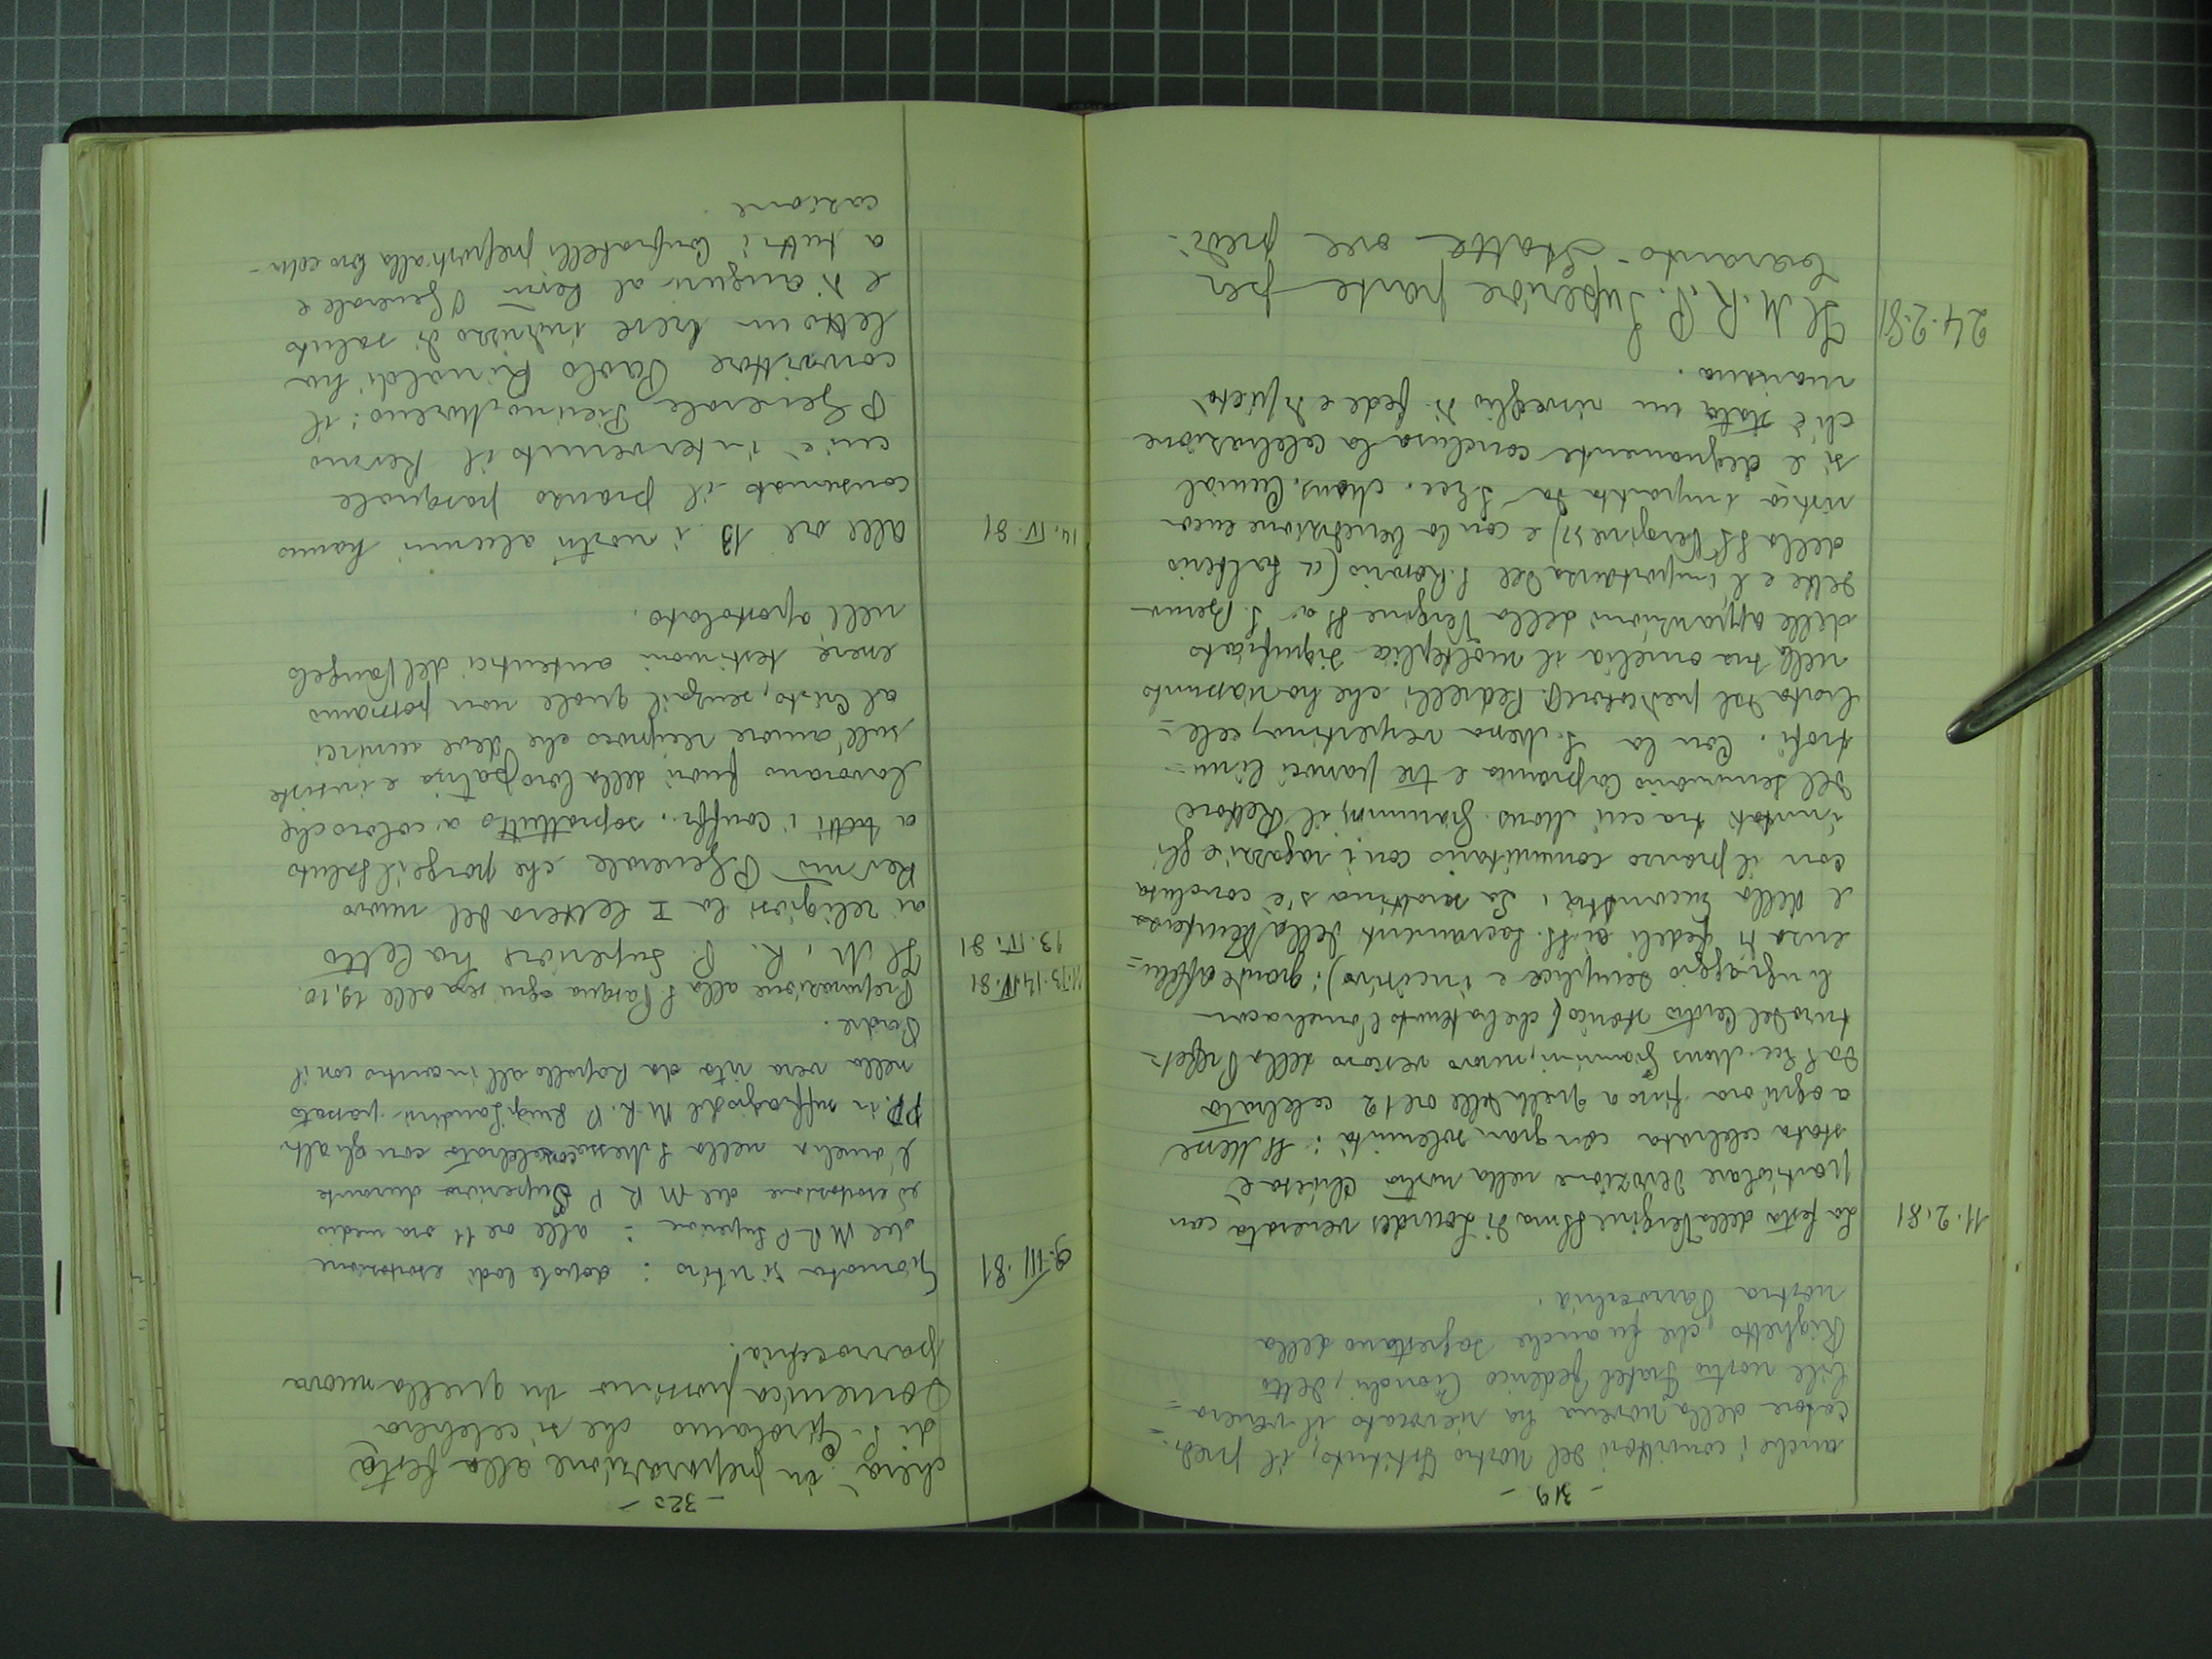 - 319 -
anche i convittori del nostro Istituto, il predi-
catore della Novena ha rievocato il venera-
bile nostro Fratel Federico Cionchi, detto
Righetto, che fu anche sagrestano della
nostra Parrocchia.
11.2.81
La festa della Vergine SSma di Lourdes venerata con
particolare devozione nella nostra chiesa è
stata celebrata con gran solennità: SS. Messe
a ogni ora fino a quella delle ore 12 celebrata
da S. Ecc. Mons Giannini, nuovo vescovo della Prefet-
tura del Centro storico (che ha tenuto l'omelia con
linguaggio semplice e incisivo); grande afflu-
enza di fedeli ai SS. Sacramenti della Penitenza
e della Eucaristia; la mattina s'è conclusa
con il pranzo comunitario con i ragazzi e gli
invitati tra cui Mons. Giannini, il Rettore
del seminario Capranica e tre parroci limi-
trofi. Con la S. Messa vespertina, cele-
brata dal predicatore P. Pedrelli che ha riassunto
nella sua omelia il molteplice significato
delle apparizioni della Vergine SS a S. Berna-
dette e l'importanza del S. Rosario (il salterio
della SS Vergine>>) e con la benedizione euca-
ristica impartita da S. Ecc. Mons. Cunial
si è degnamente conclusa la celebrazione
ch'è stata un risveglio di fede e di pietà
mariana.
24.2.81
Il M.R.P. Superiore parte per
Taranto - Statte ove predi-
- 320 -
cherà in preparazione alla festa
di S. Girolamo che si celebrerà
Domenica prossima in quella nuova
parrocchia.
9.III.81
Giornata di ritiro: dopo le lodi esortazione
del M R P Superiore: alle ore 11 ora media
ed esortazione del M R P Superiore durante
l'omelia nella S Messa concelebrata con gli altri
PP. in suffragio del M.R.P. Luigi Landini passato
nella vera vita da Rapallo all'incontro con il
Padre.
11.13.14.IV.81
Preparazione alla S Pasqua ogni sera alle 19,10.
13.IV.81
Il M. R. P. Superiore ha letto
ai religiosi la I lettera del nuovo
Rev.mo P. Generale che porge il saluto
a tutti i confr., soprattutto a coloro che
lavorano fuori della loro patria e insiste
sull'amore reciproco che deve unirci
al Cristo, senza il quale non possiamo
essere testimoni autentici del Vangelo
nell'apostolato.
14.IV.81
alle ore 13 i nostri alunni hanno
consumato il pranzo pasquale
cui è intervenuto il Rev.mo
P Generale Pierino Moreno: il
convittore Paolo Rinaldi ha
letto un breve indirizzo di saluto
e di auguri al Rev.mo P Generale e
a tutti i Confratelli preposti alla loro edu-
cazione.